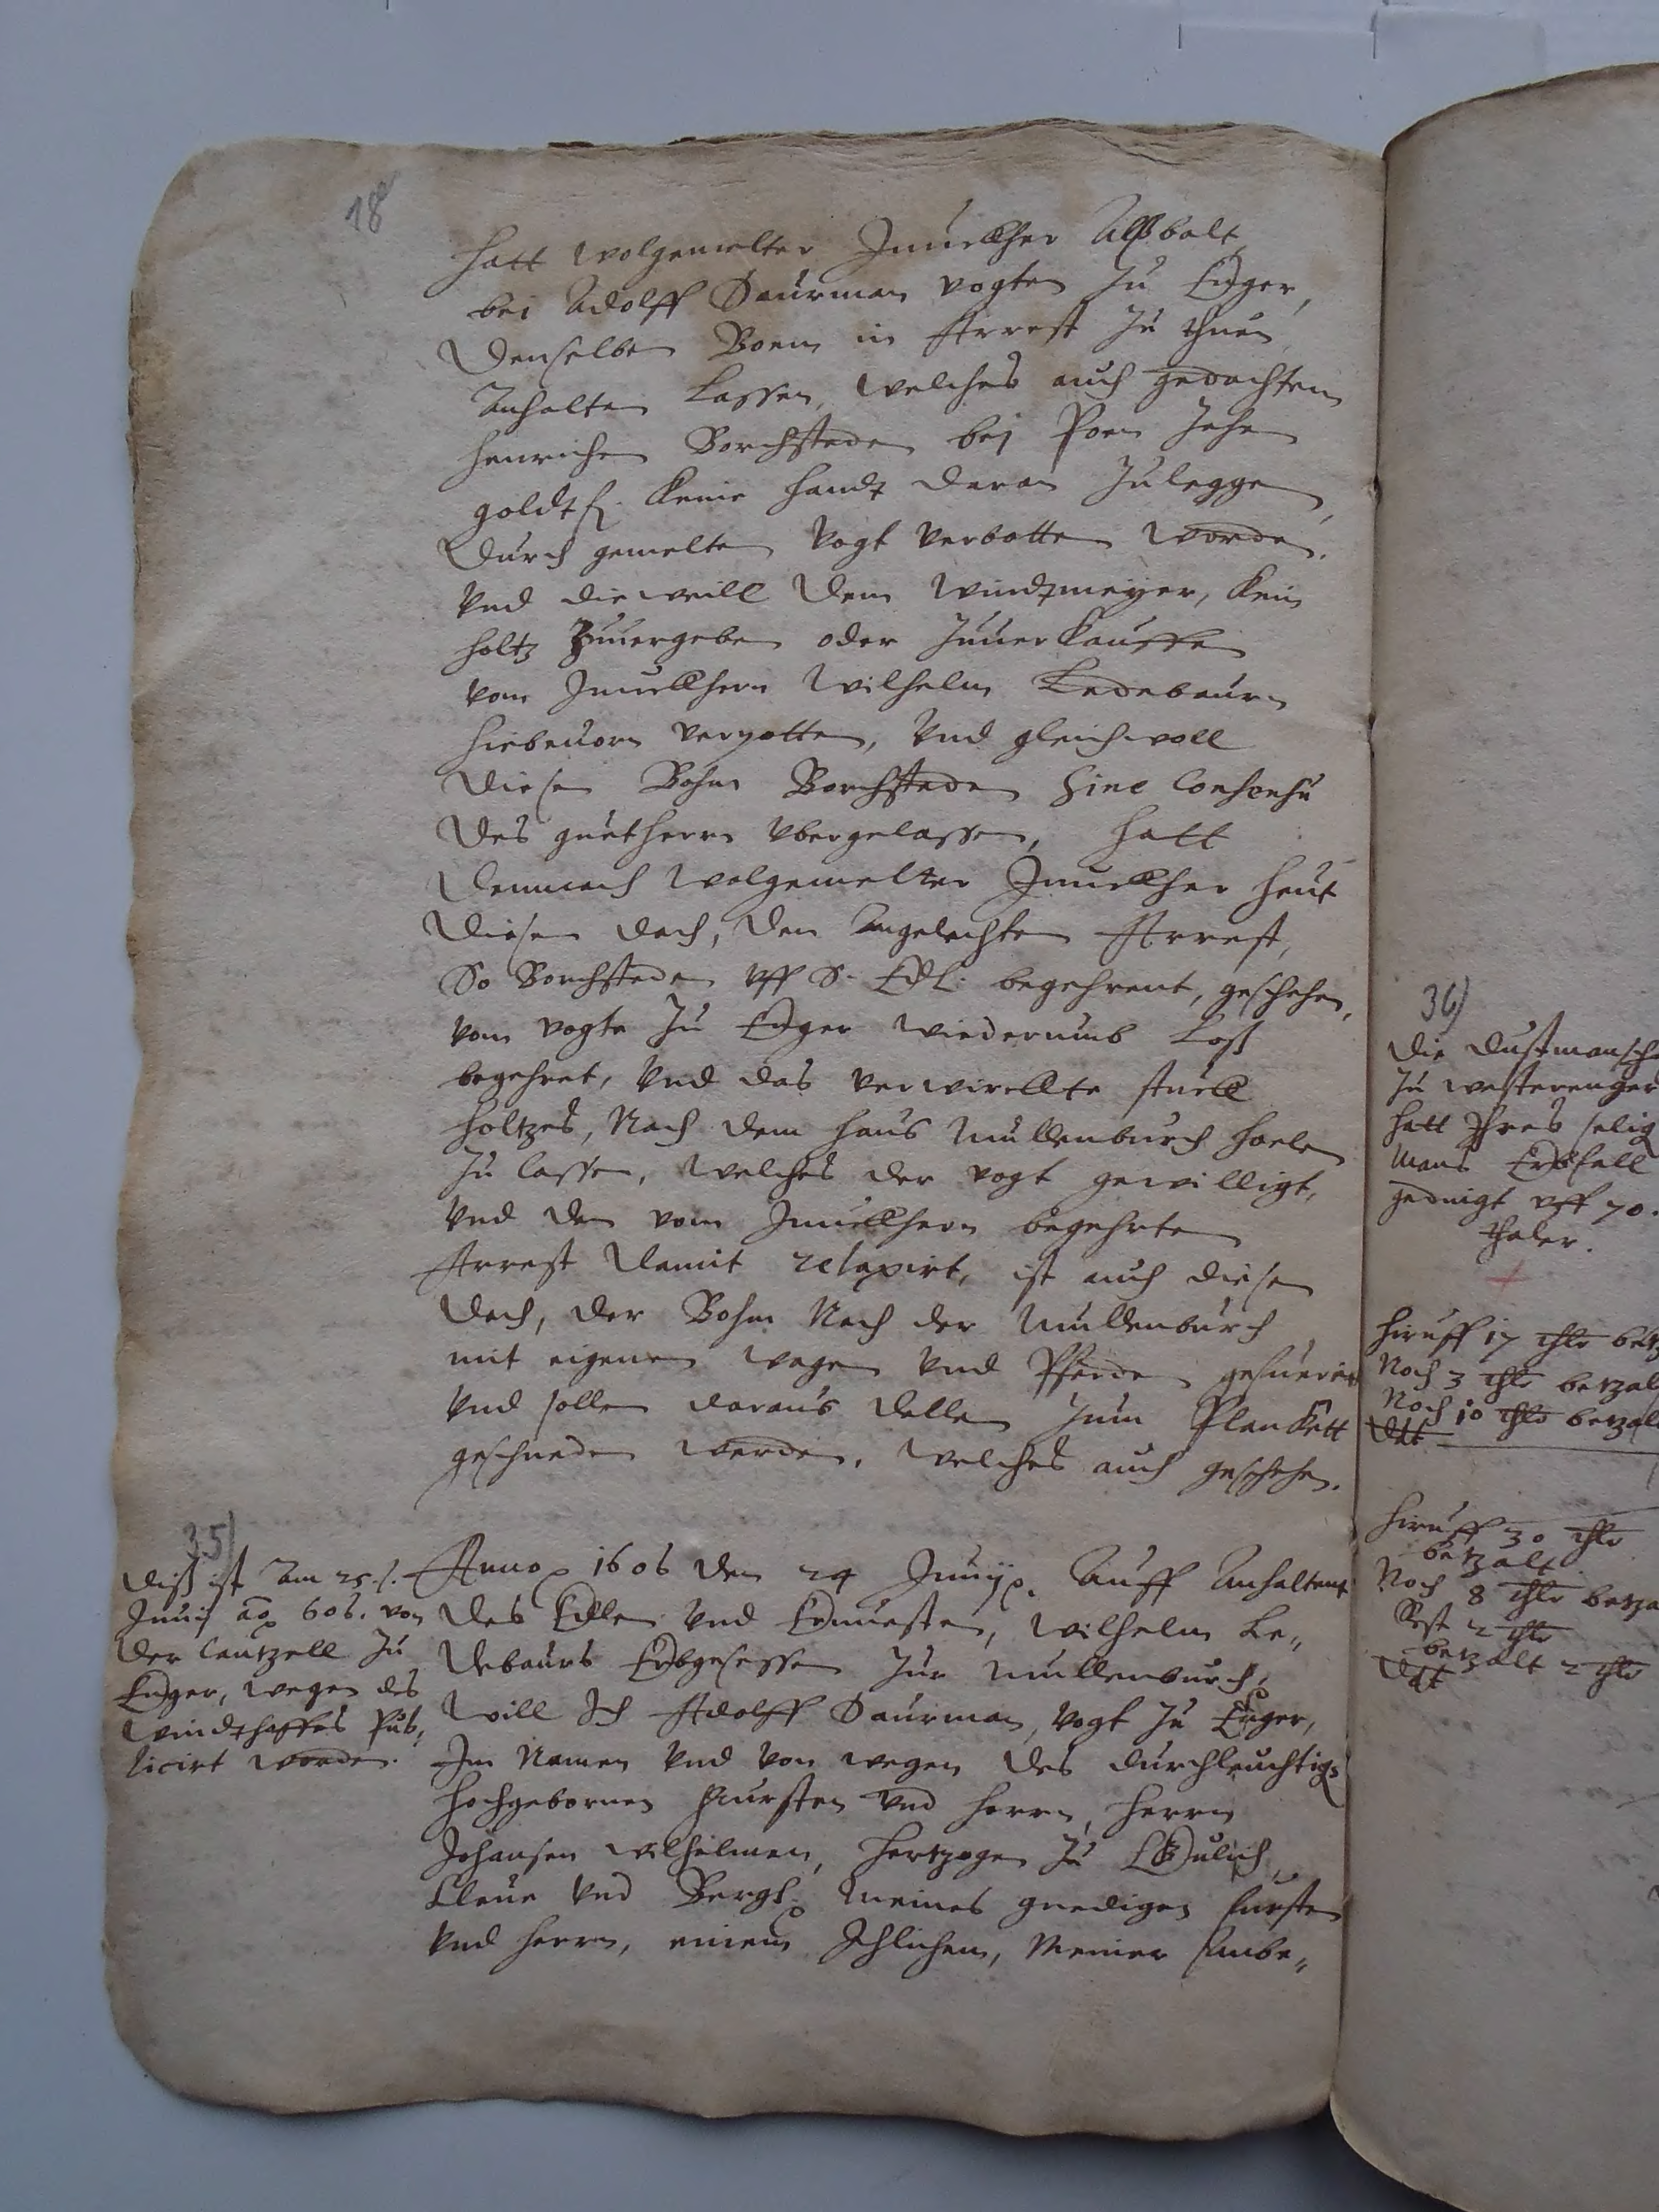 18
hatt wolgemelter Junckher Alßbalt
bei Adolff Daurman vogten zu Enger,
denselben Boem in Arrest zu thuen
Anhalten lassen, welches auch gedachtem
Henrichen Borchsteden bej Poen zehn
goldtfl. keine handt daran zuleggen,
durch gemelten Vogt verbotten worden.
Vnd dieweill dem Windtmeyer, kein
holtz Zuuergeben oder zuuerkauffen
vom Junckhern Wilhelm Ledebaurn
hiebeuorn verpotten, Vnd gleichwoll
diesen Bohm Borchsteden Sine Consensu
des guetherrn vbergelassen, hatt
demnach wolgemelter Junckher heut
diesen dach, den angelachten Arrest,
So Borchsteden vff S. Edl: begehrent, geschehen,
vom vogte zu Enger wiederumb loß
begehret, Vnd das verwirckte stuck
holtzes, Nach dem haus Mullenburch holen
zu lassen, welches der vogt gewilligt,
Vnd den vom Junckhern begehrten
Arrest damit relaxirt, ist auch diesen
dach, der Bohm Nach der Mullenburch
mit eigenen wagen vnd Pferden gefueret
Vnd sollen daraus dellen zum Planckett
geschneden werden, welches auch geschehen.
35)
diß ist Am 25. f.
Junij ao 606. von
der Cantzell zu
Enger, wegen des
Windthaffes Pub,
licirt worden.
Anno 1606 den 24 Junij. Auff Anhaltent
des Edlen Vnd Ernuesten, Wilhelm Le,,
debaurs Erbgesessen zur Mullenburch,
will Ich Adolff Daurman, Vogt zu Enger,
Im Namen Vnd von wegen des durchleuchtig:
hochgebornen Fursten Vnd herrn, herrn
Johansen Wilhelmen, hertzogen zu Gulich,
Cleue Vnd Bergh, meines gnedigen fursten
Vnd herrn, einem Jhlichen, Meiner ambe,,
36)
Die dustmansch
zu westerenger
hatt Ihres selig
Mans Erbfall
gedingt vff 70.
thaler.
hiruff 17 thlr betz
Noch 3 thlr betzal
Noch 10 thlr betzal
hiruff 30 thlr
betzalt.
Noch 8 thlr betza
Rest 2 thlr
betzalt 2 thlr